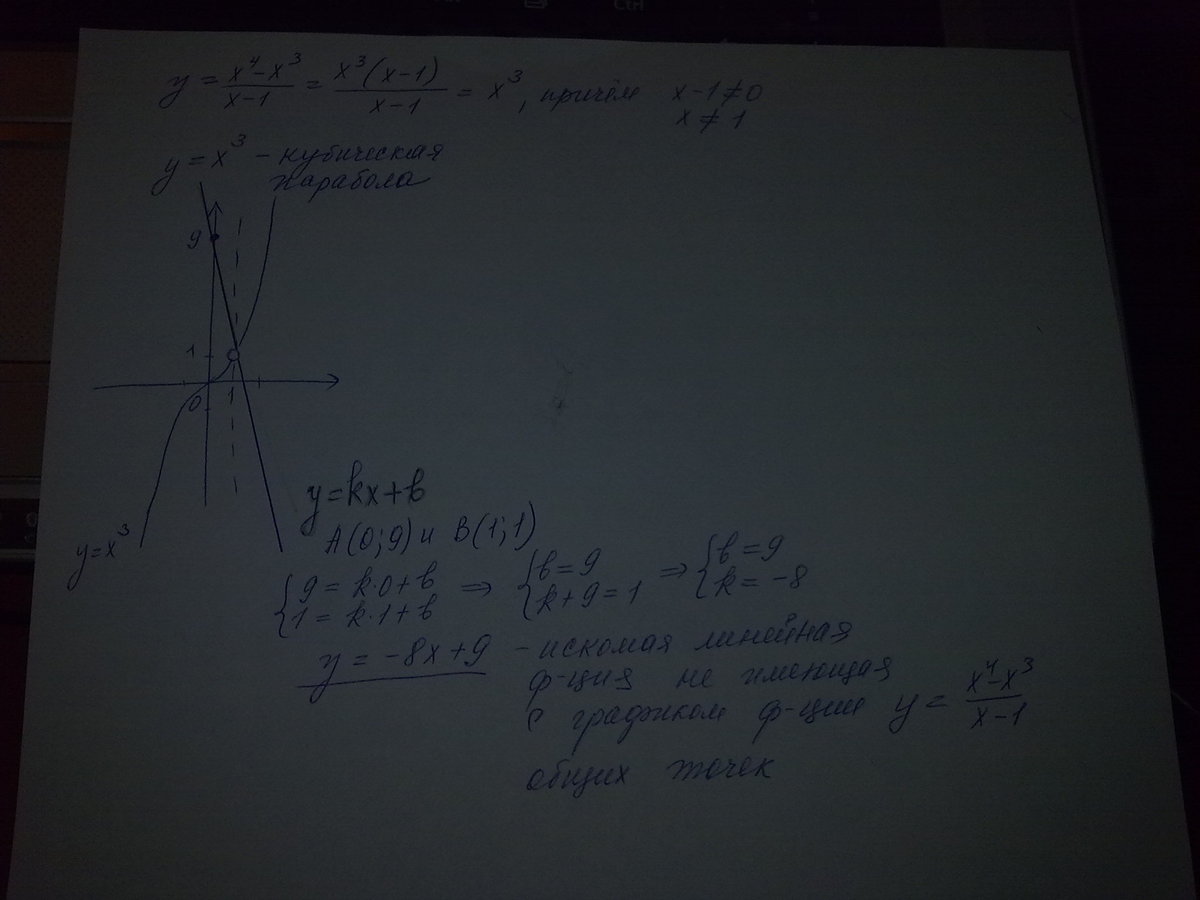 y = x⁴-x³/x-1 = x³(x-1)/x-1 = x³, причём x-1≠0
x ≠ 1
y = x³ - кубическая
парабола
9
1
0 1
y=x³
y=kx+b
A(0;9) и B(1;1)
{9 = k·0+b ⇒ {b=9 ⇒ {b=9
{1 = k·1+b {k+9=1 {k=-8
y = -8x+9 - искомая линейная
ф-ция не имеющая
с графиком ф-ции y = x⁴-x³/x-1
общих точек
Ctrl